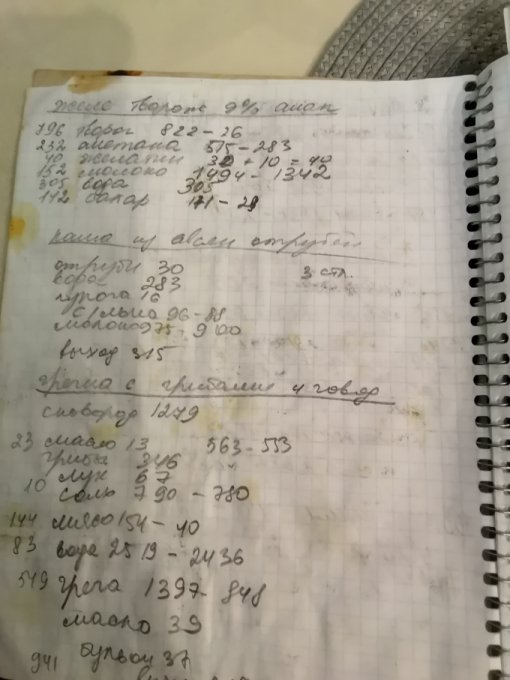 желе творож 9%
796 творог 822 - 26
232 сметана 515 - 283
40 желатин 30 + 10 = 40
152 молоко 1494 - 1342
305 вода 305
142 сахар 171 - 29
каша из овсян отрубей
отруби 30 3 стл.
вода 283
курага 16
масло 96 - 88
молоко 975 - 900
выход 315
гречка с грибами и говяд
сковород 1279
23 масло 13 563 - 553
грибы 346
лук 67
10 соль 790 - 780
144 мясо 154 - 10
83 вода 2519 - 2436
549 греча 1397 - 848
масло 39
941 бульон 37